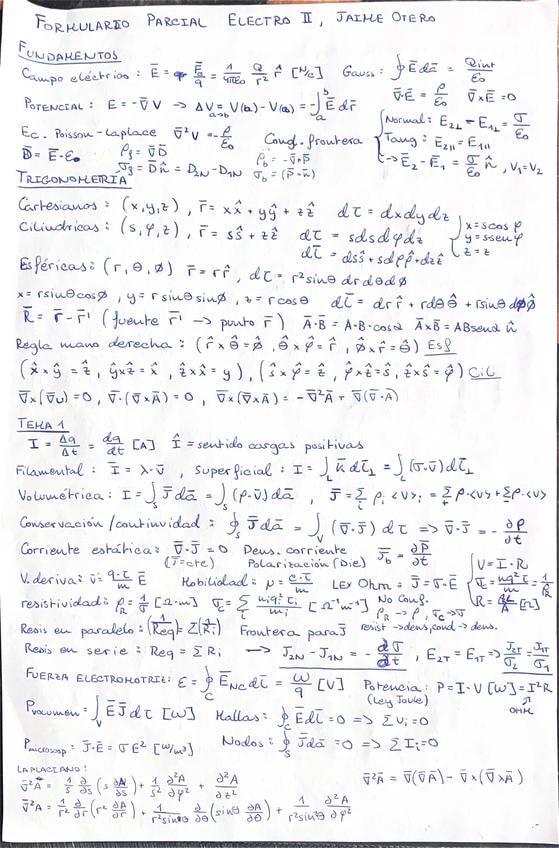 FORMULARIO PARCIAL ELECTRO II, JAIME OTERO
FUNDAMENTOS
Campo eléctrico: E̅ = F̅e/q = 1/4πε₀ Q/r² r̂ [N/C] Gauss: ∮E̅da̅ = Qint/ε₀
∇̅·E̅ = ρ/ε₀ ∇̅×E̅=0
POTENCIAL: E = -∇̅V → ΔV a→b = V(b)-V(a) = -∫ₐᵇ E̅dr̅
Ec. Poisson-Laplace ∇̅²V = -ρ/ε₀ Cond. frontera
Normal: E₂⊥ - E₁⊥ = σ/ε₀
Tang: E₂∥ = E₁∥
→ E̅₂ - E̅₁ = σ/ε₀ n̂, V₁=V₂
D̅ = E̅·ε₀ ρf = ∇̅D̅ ρb = -∇̅·P̅
σf = D̅n̂ = D2N - D1N σb = (P̅·n̂)
TRIGONOMETRIA
Cartesianas: (x,y,z), r̅ = xx̂ + yŷ + zẑ dτ = dxdydz
Cilíndricas: (s,φ,z), r̅ = sŝ + zẑ dτ = sdsdφdz
x = s cosφ
y = s senφ
z = z
dl̅ = dsŝ + sdφφ̂ + dzẑ
Esféricas: (r,θ,ø) r̅ = rr̂, dτ = r²sinθdrdθdø
x = rsinθcosø, y = rsinθsinø, z = rcosθ dl̅ = drr̂ + rdθθ̂ + rsinθdøø̂
R̅ = r̅ - r̅' (fuente r̅' → punto r̅) A̅·B̅ = A·B·cosα A̅×B̅ = ABsenα n̂
Regla mano derecha: (r̂×θ̂=ø̂, θ̂×φ̂=r̂, ø̂×r̂=θ̂) Esf
(x̂×ŷ=ẑ, ŷ×ẑ=x̂, ẑ×x̂=y), (ŝ×φ̂=ẑ, φ̂×ẑ=ŝ, ẑ×ŝ=φ̂) Cil
∇̅×(∇̅U) = 0, ∇̅·(∇̅×A̅) = 0, ∇̅×(∇̅×A̅) = -∇̅²A̅ + ∇̅(∇̅·A̅)
TEMA 1
I = Δq/Δt = dq/dt [A] Î = sentido cargas positivas
Filamental: I̅ = λ·v̅, superficial: I = ∫L K̅dl̅⊥ = ∫L (σ·v̅)dl̅⊥
Volumétrica: I = ∫S J̅da̅ = ∫S (ρ·v̅)da̅, J̅ = Σi ρi<vi> = Σ+ ρ·<v> + Σ- ρ·<v>
Conservación/continuidad: ∮S J̅da̅ = ∫V (∇̅·J̅)dτ ⇒ ∇̅·J̅ = -∂ρ/∂t
Corriente estática: ∇̅·J̅ = 0 Dens. corriente
(J̅=cte) Polarización (Die) J̅b = ∂P̅/∂t
V = I·R
σc = nq²τ/m = 1/R
R = ρL/A [Ω]
V. deriva: v̅ = q·τ/m E̅ Mobilidad: μ = e·τ/m Ley Ohm: J̅ = σ·E̅
resistividad: ρR = 1/σ [Ω·m] σc = Σi niqi²τi/mi [Ω⁻¹m⁻¹] No Conf.
ρR → ρ, σc → σ
resist → dens, cond → dens.
Resis en paralelo: (1/Req) = Σ(1/Ri) Frontera para J̅
Resis en serie: Req = ΣRi → J2N - J1N = -dσ/dt, E2T = E1T ⇒ J2T/σ2 = J1T/σ1
FUERZA ELECTROMOTRIZ: ε = ∮C E̅NC dl̅ = ω/q [V] Potencia: P = I·V [W] = I²R
(Ley Joule) OHM
Pvolumen = ∫V E̅J̅dτ [W] Mallas: ∮C E̅dl̅ = 0 ⇒ Σvi = 0
Pmicroscop: J̅·E̅ = σE² [W/m³] Nodos: ∮S J̅da̅ = 0 ⇒ ΣIi = 0
LAPLACIANO:
∇̅²A = 1/s ∂/∂s (s ∂A/∂s) + 1/s² ∂²A/∂φ² + ∂²A/∂z² ∇̅²A̅ = ∇̅(∇̅A̅) - ∇̅×(∇̅×A̅)
∇̅²A = 1/r² ∂/∂r (r² ∂A/∂r) + 1/r²sinθ ∂/∂θ (sinθ ∂A/∂θ) + 1/r²sin²θ ∂²A/∂φ²